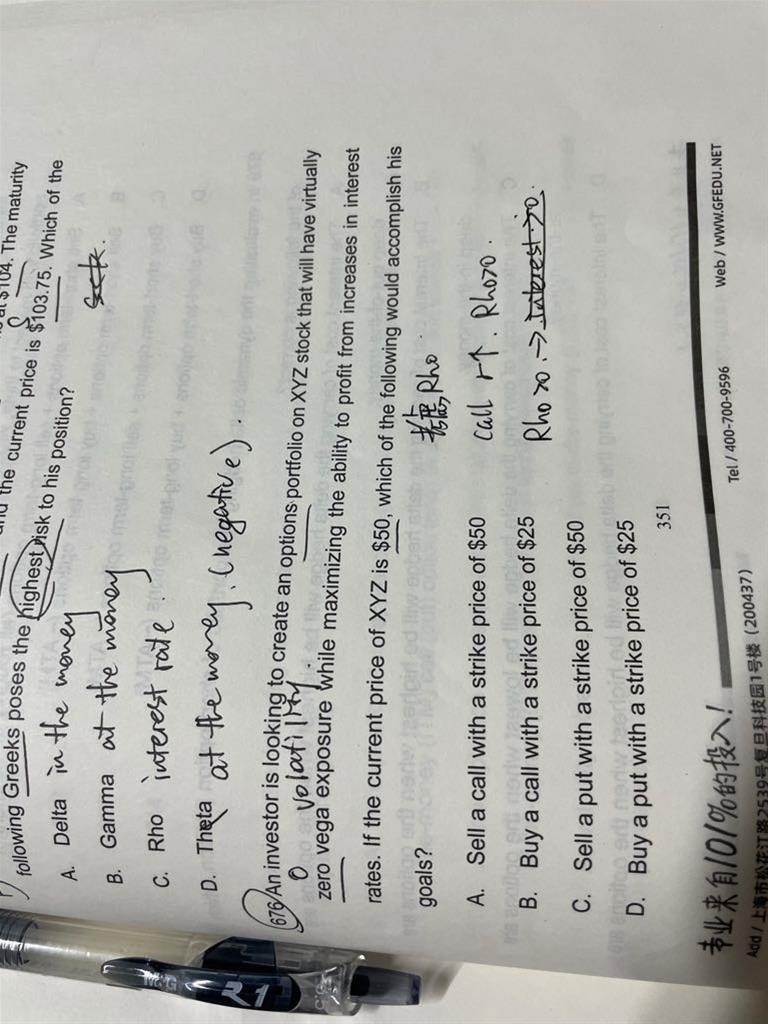 at $104. The maturity
and the current price is $103.75. Which of the
following Greeks poses the highest risk to his position?
A. Delta in the money
B. Gamma at the money
C. Rho interest rate
D. Theta at the money. (negative).
676. An investor is looking to create an options portfolio on XYZ stock that will have virtually
0 volatility.
zero vega exposure while maximizing the ability to profit from increases in interest
rates. If the current price of XYZ is $50, which of the following would accomplish his
goals?
Rho.
A. Sell a call with a strike price of $50
call r↑. Rho>0.
B. Buy a call with a strike price of $25
Rho >0. → interest >0.
C. Sell a put with a strike price of $50
D. Buy a put with a strike price of $25
351
专业来自101%的投入!
Add / 上海市松花江路2539号复旦科技园1号楼 (200437)
Tel / 400-700-9596
Web / WWW.GFEDU.NET
M&G
R1